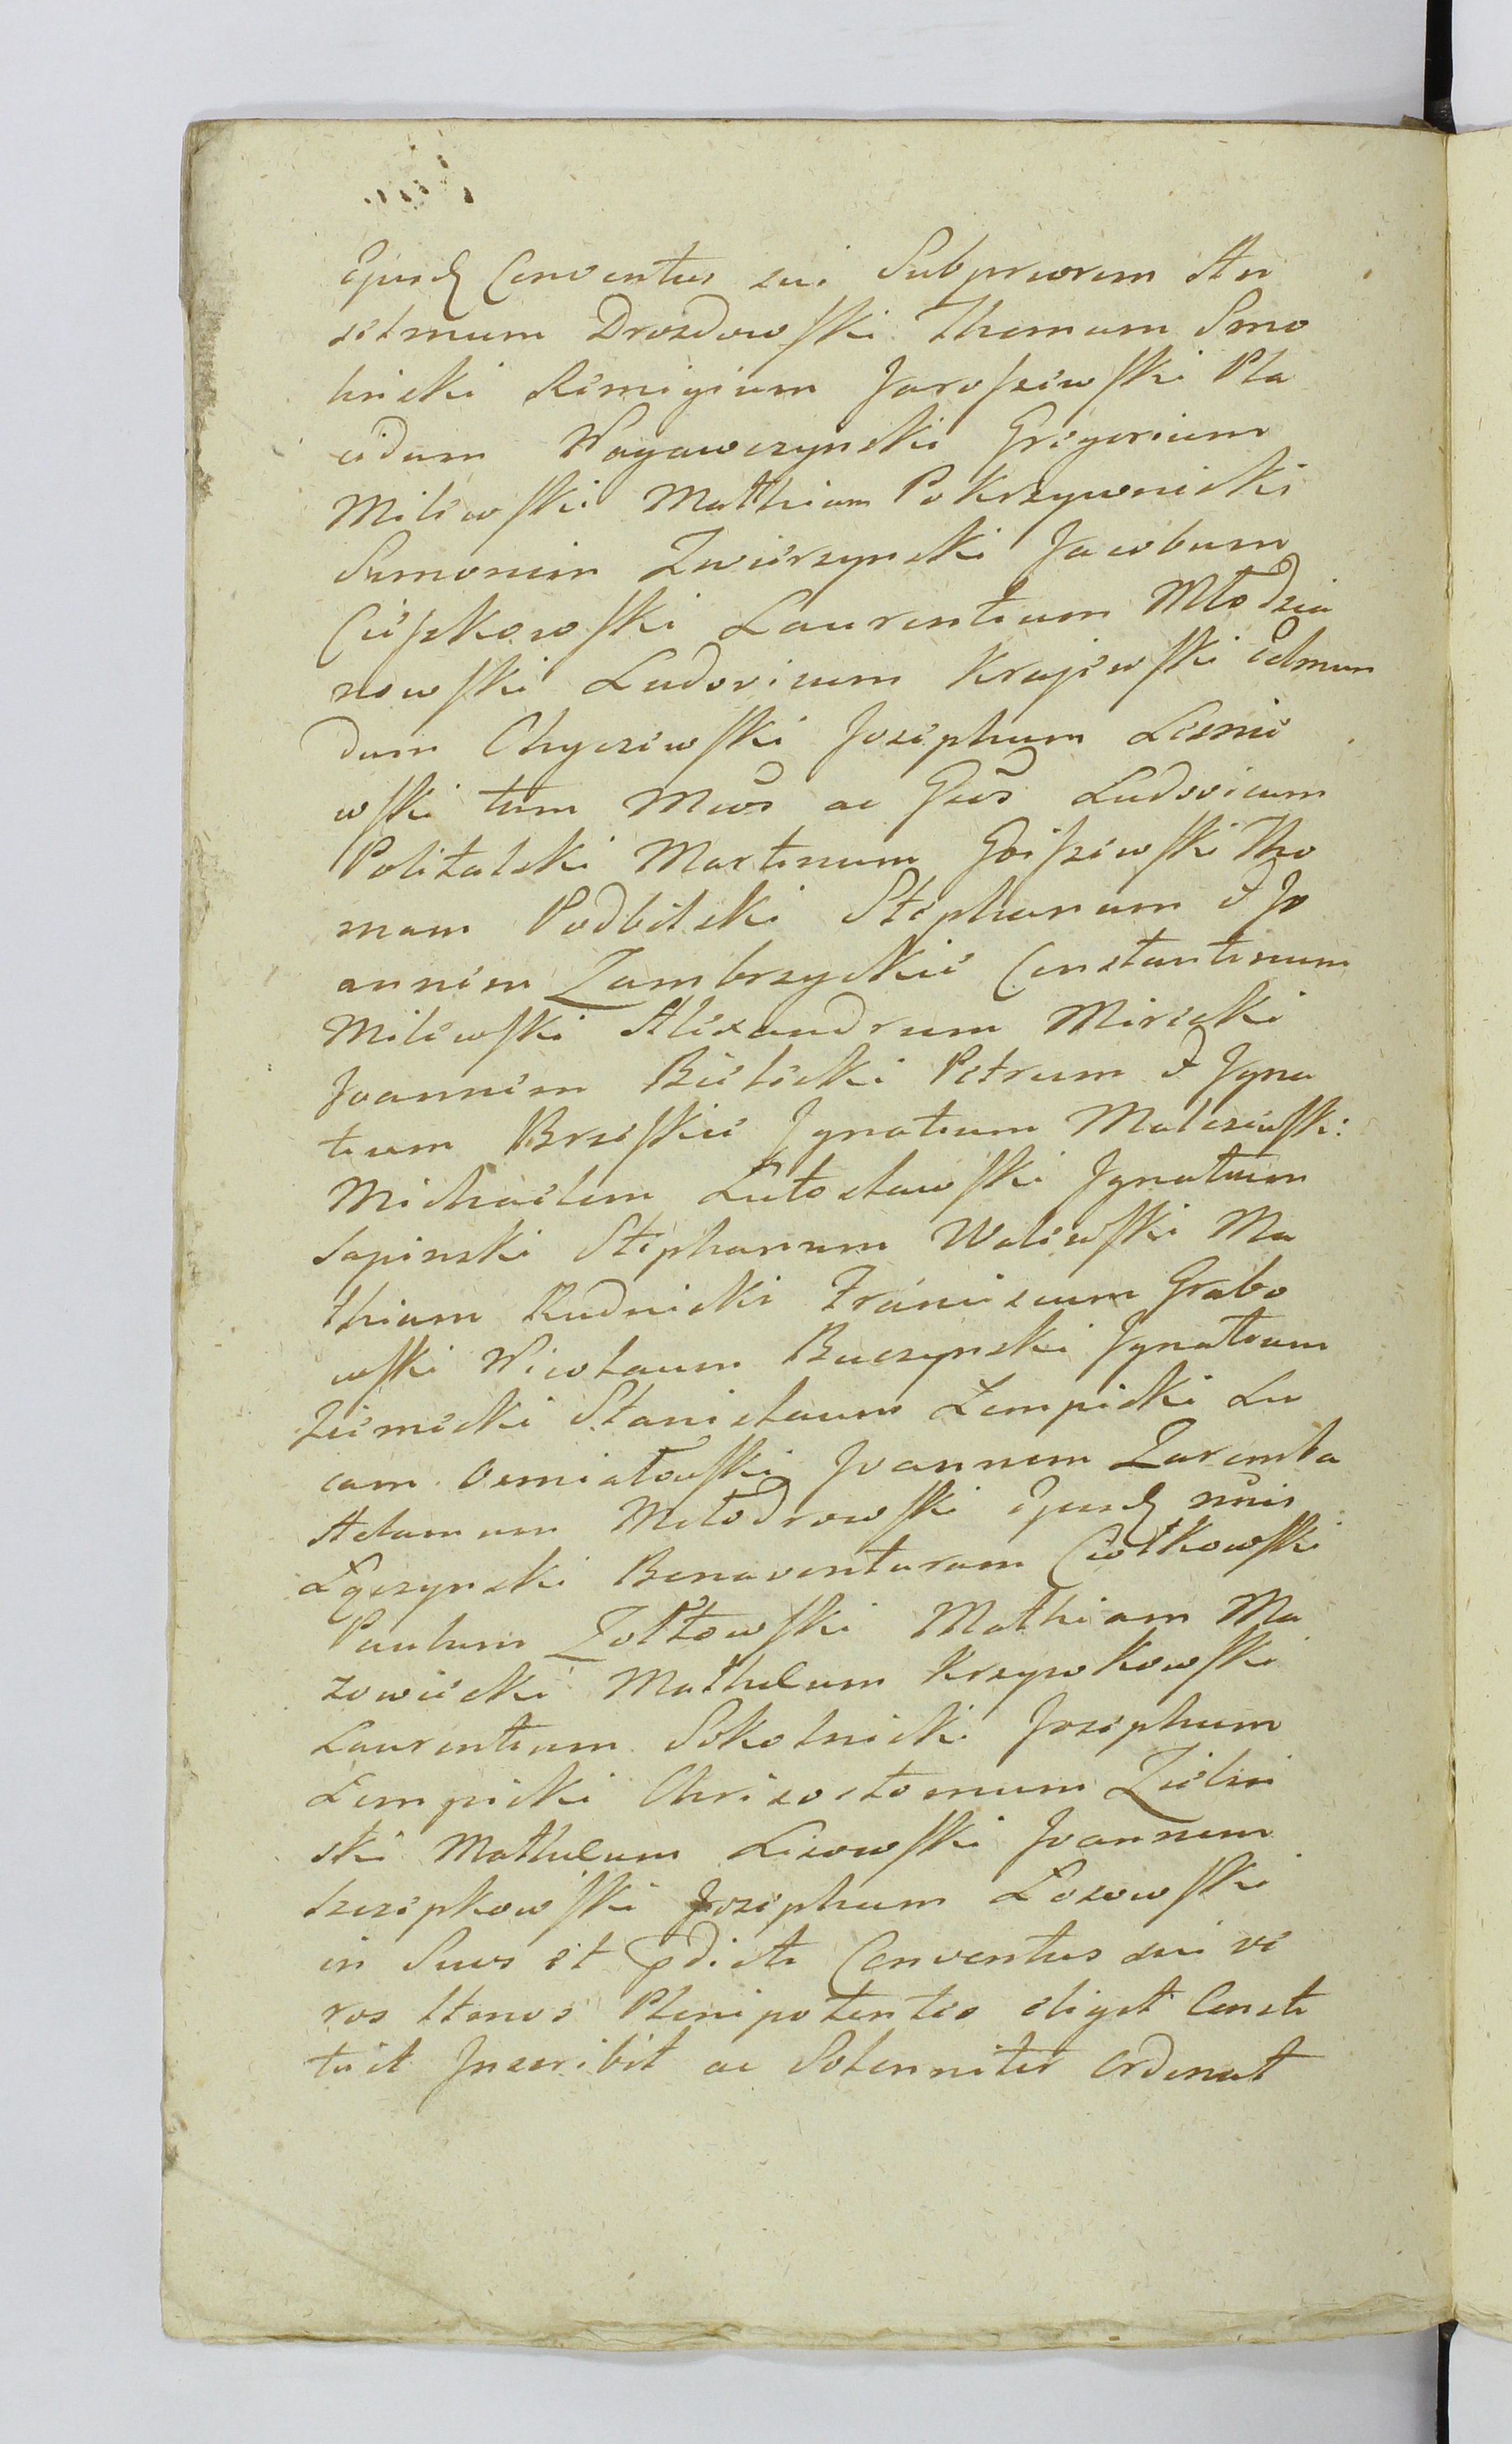 Ejusd Conventus sui Subpriorem An
selmum Drozdowski Thomam Smo
linski Remigium Jaroszewski Pla
cidum Wagawczynski Gregorium
Milewski Mathiam Pokrzywnicki
Simonem Zwierzynski Jacobum
Cieszkowski Laurentium Młodzia
nowski Ludovicum Krajewski Edmun
dum Chyczewski Josephum Lesnie
wski tum Mcos ac Gsos Ludovicum
Politalski Martinum Goiszewski Tho
mam Podbilski Stephanum & Jo
annem Zambrzyckie Constantinum
Milewski Alexandrum Mirecki
Joannem Bielicki Petrum & Igna
tium Brzeskie Ignatium Malczewski:
Michaelem Lutosławski Ignatium
Sapinski Stephanum Walewski Ma
thiam Rudnicki Franciscum Grabo
wski Nicolaum Buczynski Ignatium
Ziemecki Stanislaum Łempicki Lu
cam Osmiałowski Joannem Zaremba
Adamum Młodrowski Ejusd nois
Łęczynski Bonaventuram Ciołkowski
Paulum Zołtowski Mathiam Ma
zowiecki Matheum Krzywkowski
Laurentium Sokolnicki Josephum
Łempicki Chrisostomum Zielin
ski Matheum Lisowski Joannem
Szczepkowski Josephum Łosowski
in Suos et pdicti Conventus sui ve
ros Ltmos Plenipotentes eliget Consti
tuit Inscribit ac Solenniter Ordinat